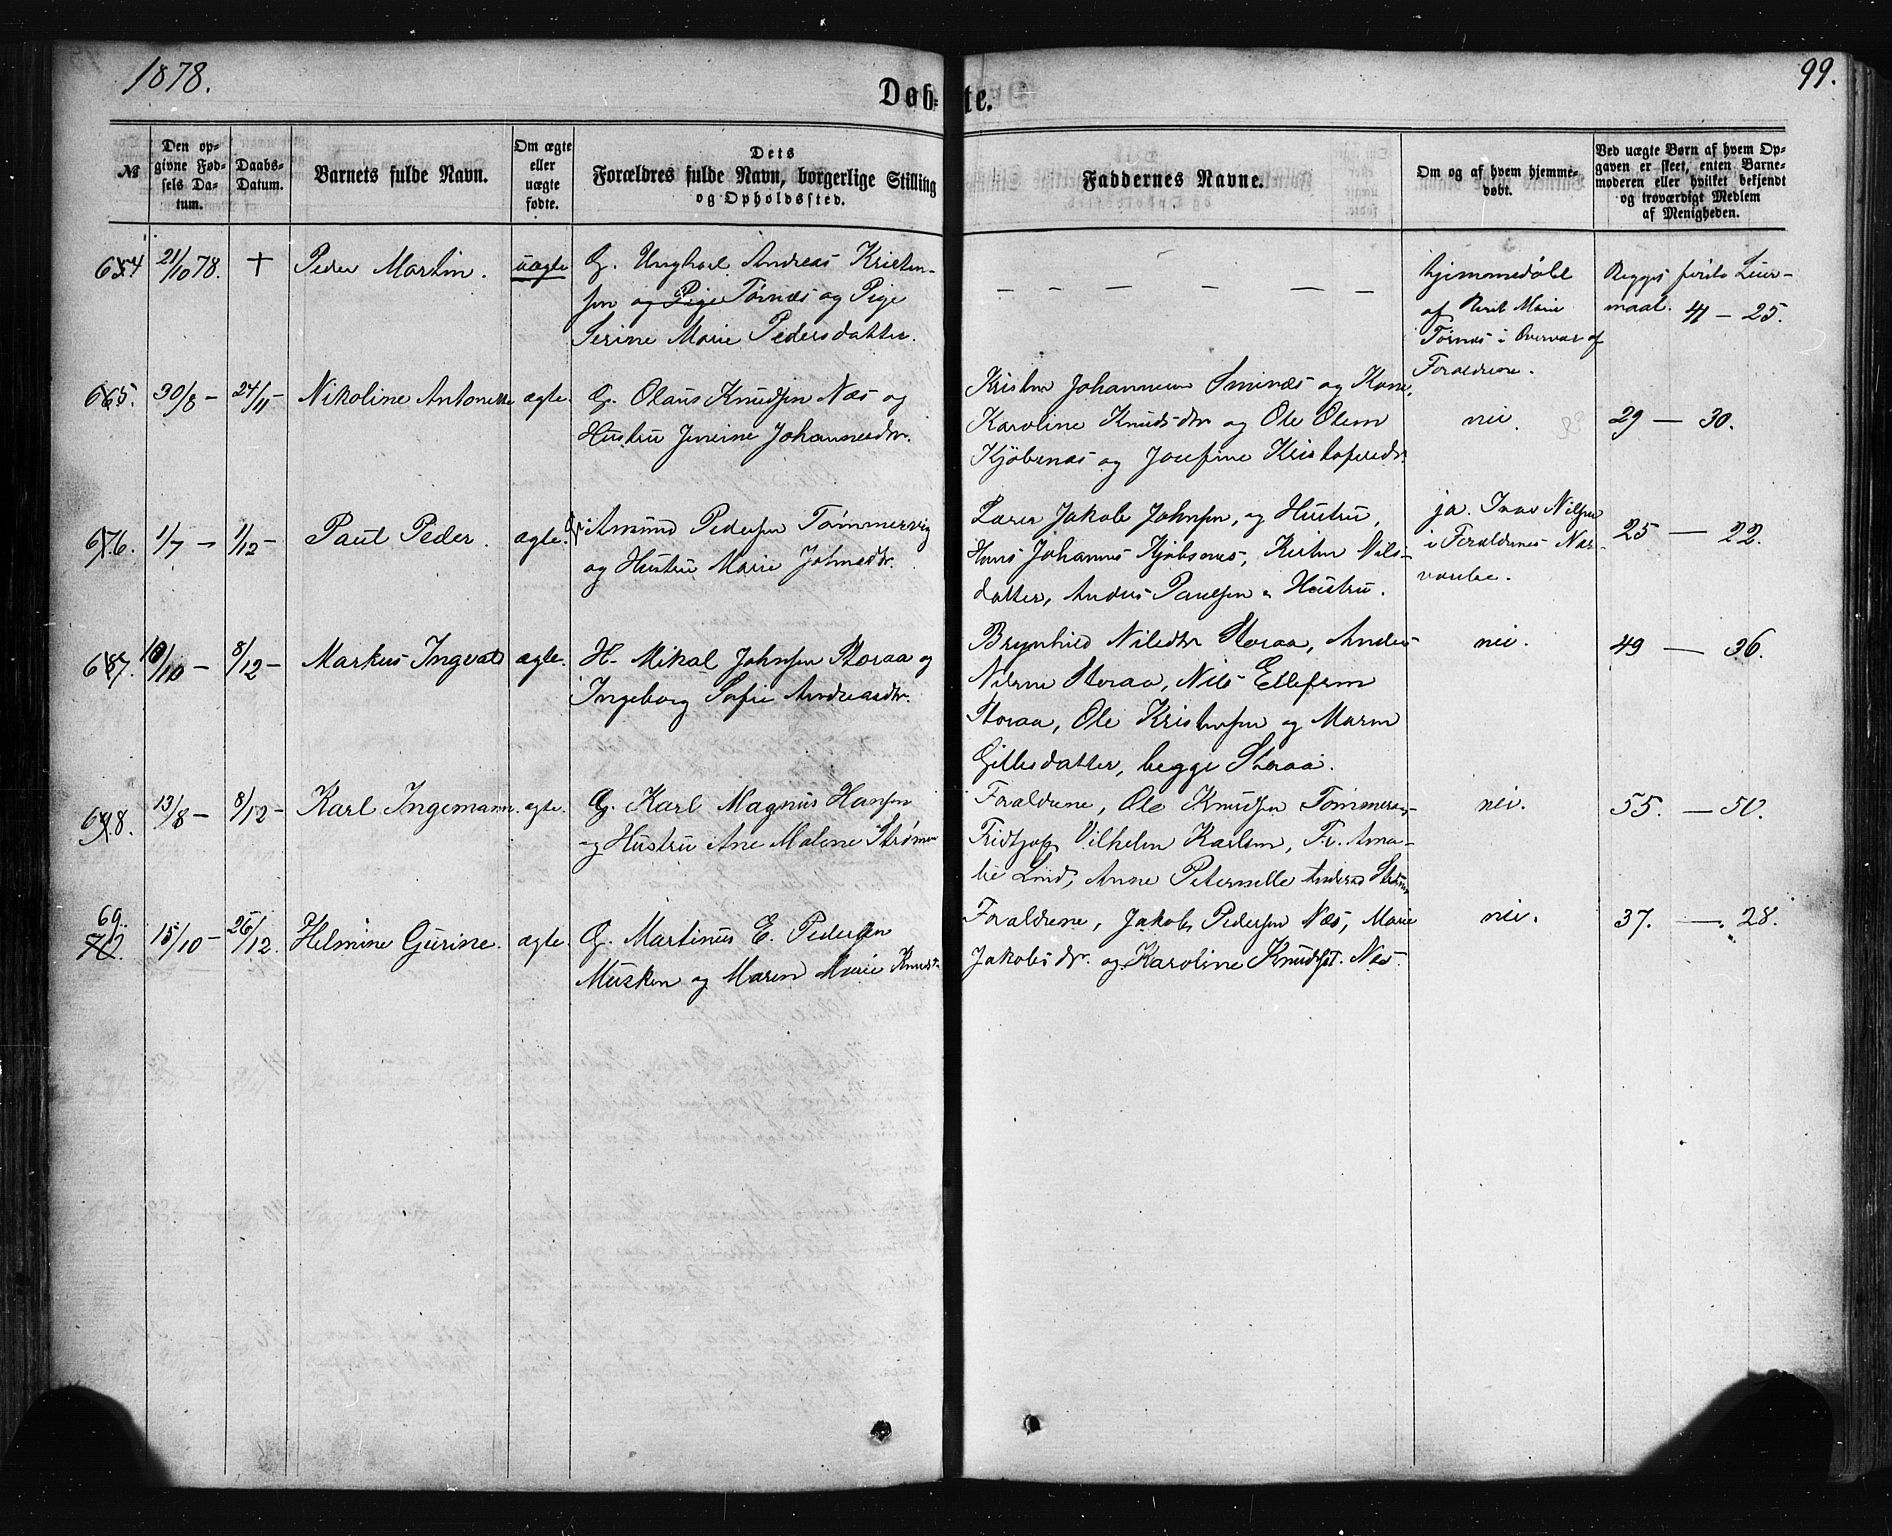 1878.
99.
Døbte.
№
Den op-
givne Fød-
sels Da-
tum.
Daabs-
Datum.
Barnets fulde Navn.
Om ægte
eller
uægte
fødte.
Dets
Forældres fulde Navn, borgerlige Stilling
og Opholdssted.
Faddernes Navne.
Om og af hvem hjemme-
døbt.
Ved uægte Børn af hvem Op-
gaven er skeet, enten Barne-
moderen eller hvilket bekjendt
og troværdigt Medlem
af Menigheden.
64
21/10 78.
+
Peder Martin.
uægte
G. Ungkarl Andreas Kristen-
sen og Pige Tørnæs og Pige
Serine Marie Pedersdatter.
— — — — — —
hjemmedøbt
af Marie
Tørnæs i Overvær af
Forældrene.
Begges første Leier-
maal. 41 — 25.
65.
30/8 —
24/11 —
Nikoline Antonette
ægte.
G. Olaus Knudsen Næs og
Hustru Jensine Johannesdtr.
Kristen Johannesen og Kone
Karoline Knudsdtr og Ole Olsen
Kjøbsnæs og Josefine Kristofersdtr
nei.
29 — 30.
66.
1/7 —
1/12 —
Paul Peder.
ægte.
Amund Pedersen Tømmervig
og Hustru Marie Johnsdtr.
Lærer Jakob Johnsen, og Hustru,
Hans Johannes Kjøbsnæs, Kirsten Nils-
datter, Anders Paulsen & Hustru.
ja. Nilsen
i Forældrenes Nær-
værelse.
25 — 22.
67.
10/10 —
8/12 —
Markus Ingvald
ægte.
H. Mikal Johnsen Storaa og
Ingeborg Sofie Andreasdtr.
Brynhild Nilsdtr Storaa, Anders
Nilsen Storaa, Nils Ellefsen
Storaa, Ole Kristensen og Maren
Gillesdatter, begge Storaa.
nei.
49 — 36.
68.
13/8 —
8/12 —
Karl Ingemann.
ægte.
G. Karl Magnus Hansen
og Hustru Ane Malene Strømen
Forældrene, Ole Knudsen Tømmeraas
Fridtjof Vilhelm Karlsen, Fr. Ama-
lie Lind, Anne Peternelle
nei.
55. — 50.
69.
72.
15/10 —
26/12.
Helmine Gurine.
ægte.
G. Martinus E. Pedersen
Musken og Maren Marie
Forældrene, Jakob Pedersen Næs, Marie
Jakobsdtr. og Karoline Knudsdt. Næs.
nei.
37. — 28.